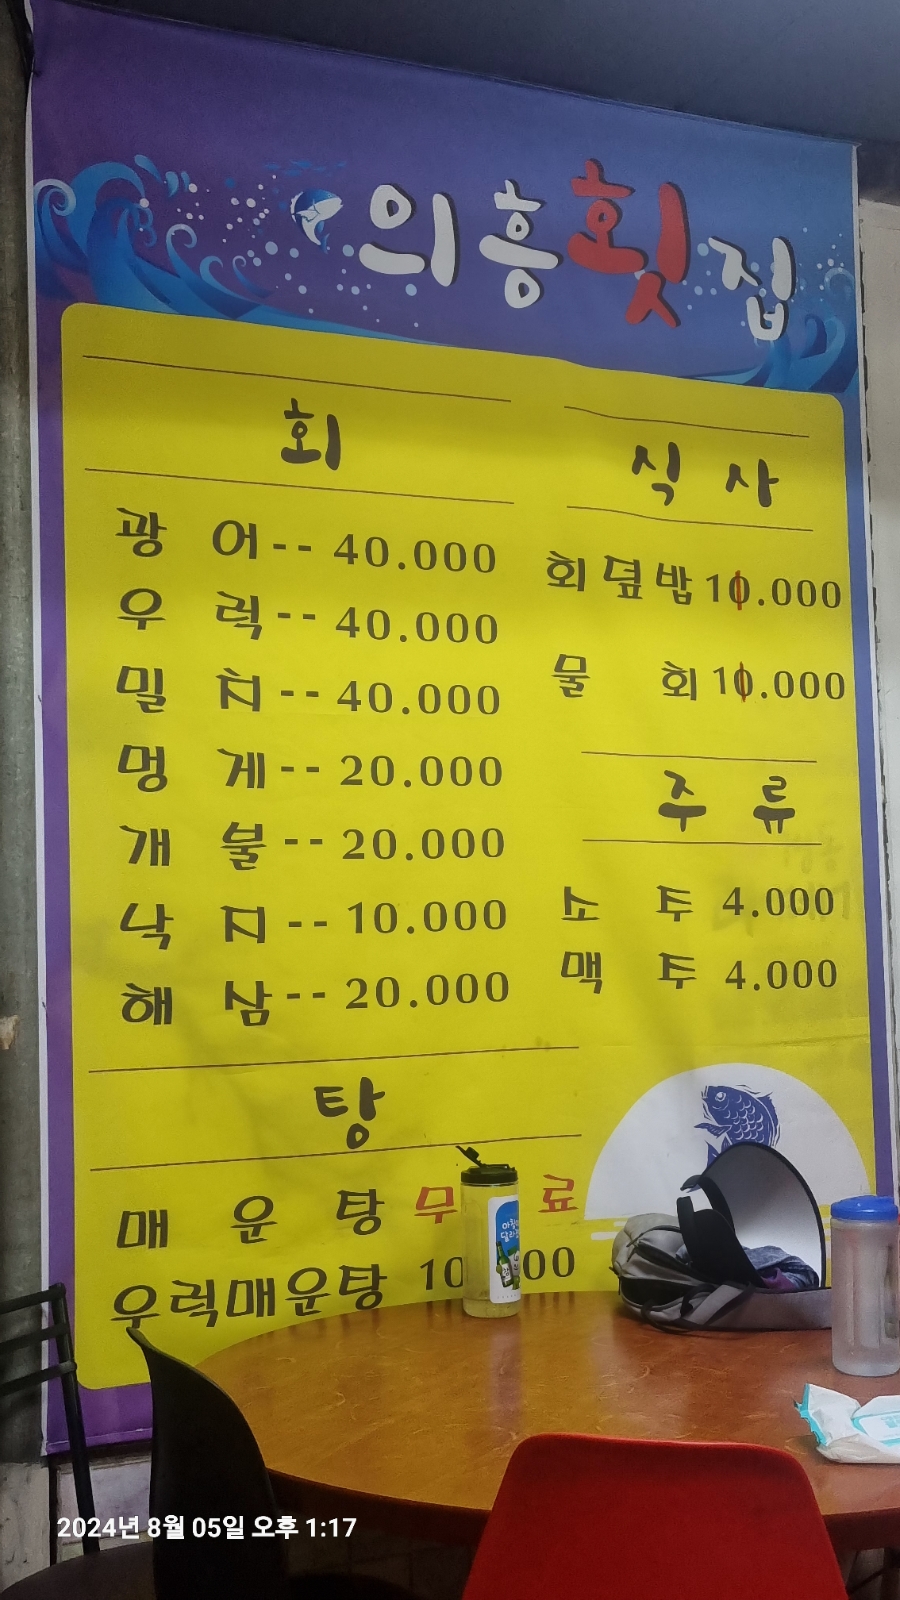 의흥횟집
회
광 어-- 40.000
우 럭-- 40.000
밀 치-- 40.000
멍 게-- 20.000
개 불-- 20.000
낙 지-- 10.000
해 삼-- 20.000
식 사
회덮밥 10.000
물 회 10.000
주 류
소 주 4.000
맥 주 4.000
탕
매 운 탕 무 료
우럭매운탕 10 00
2024년 8월 05일 오후 1:17